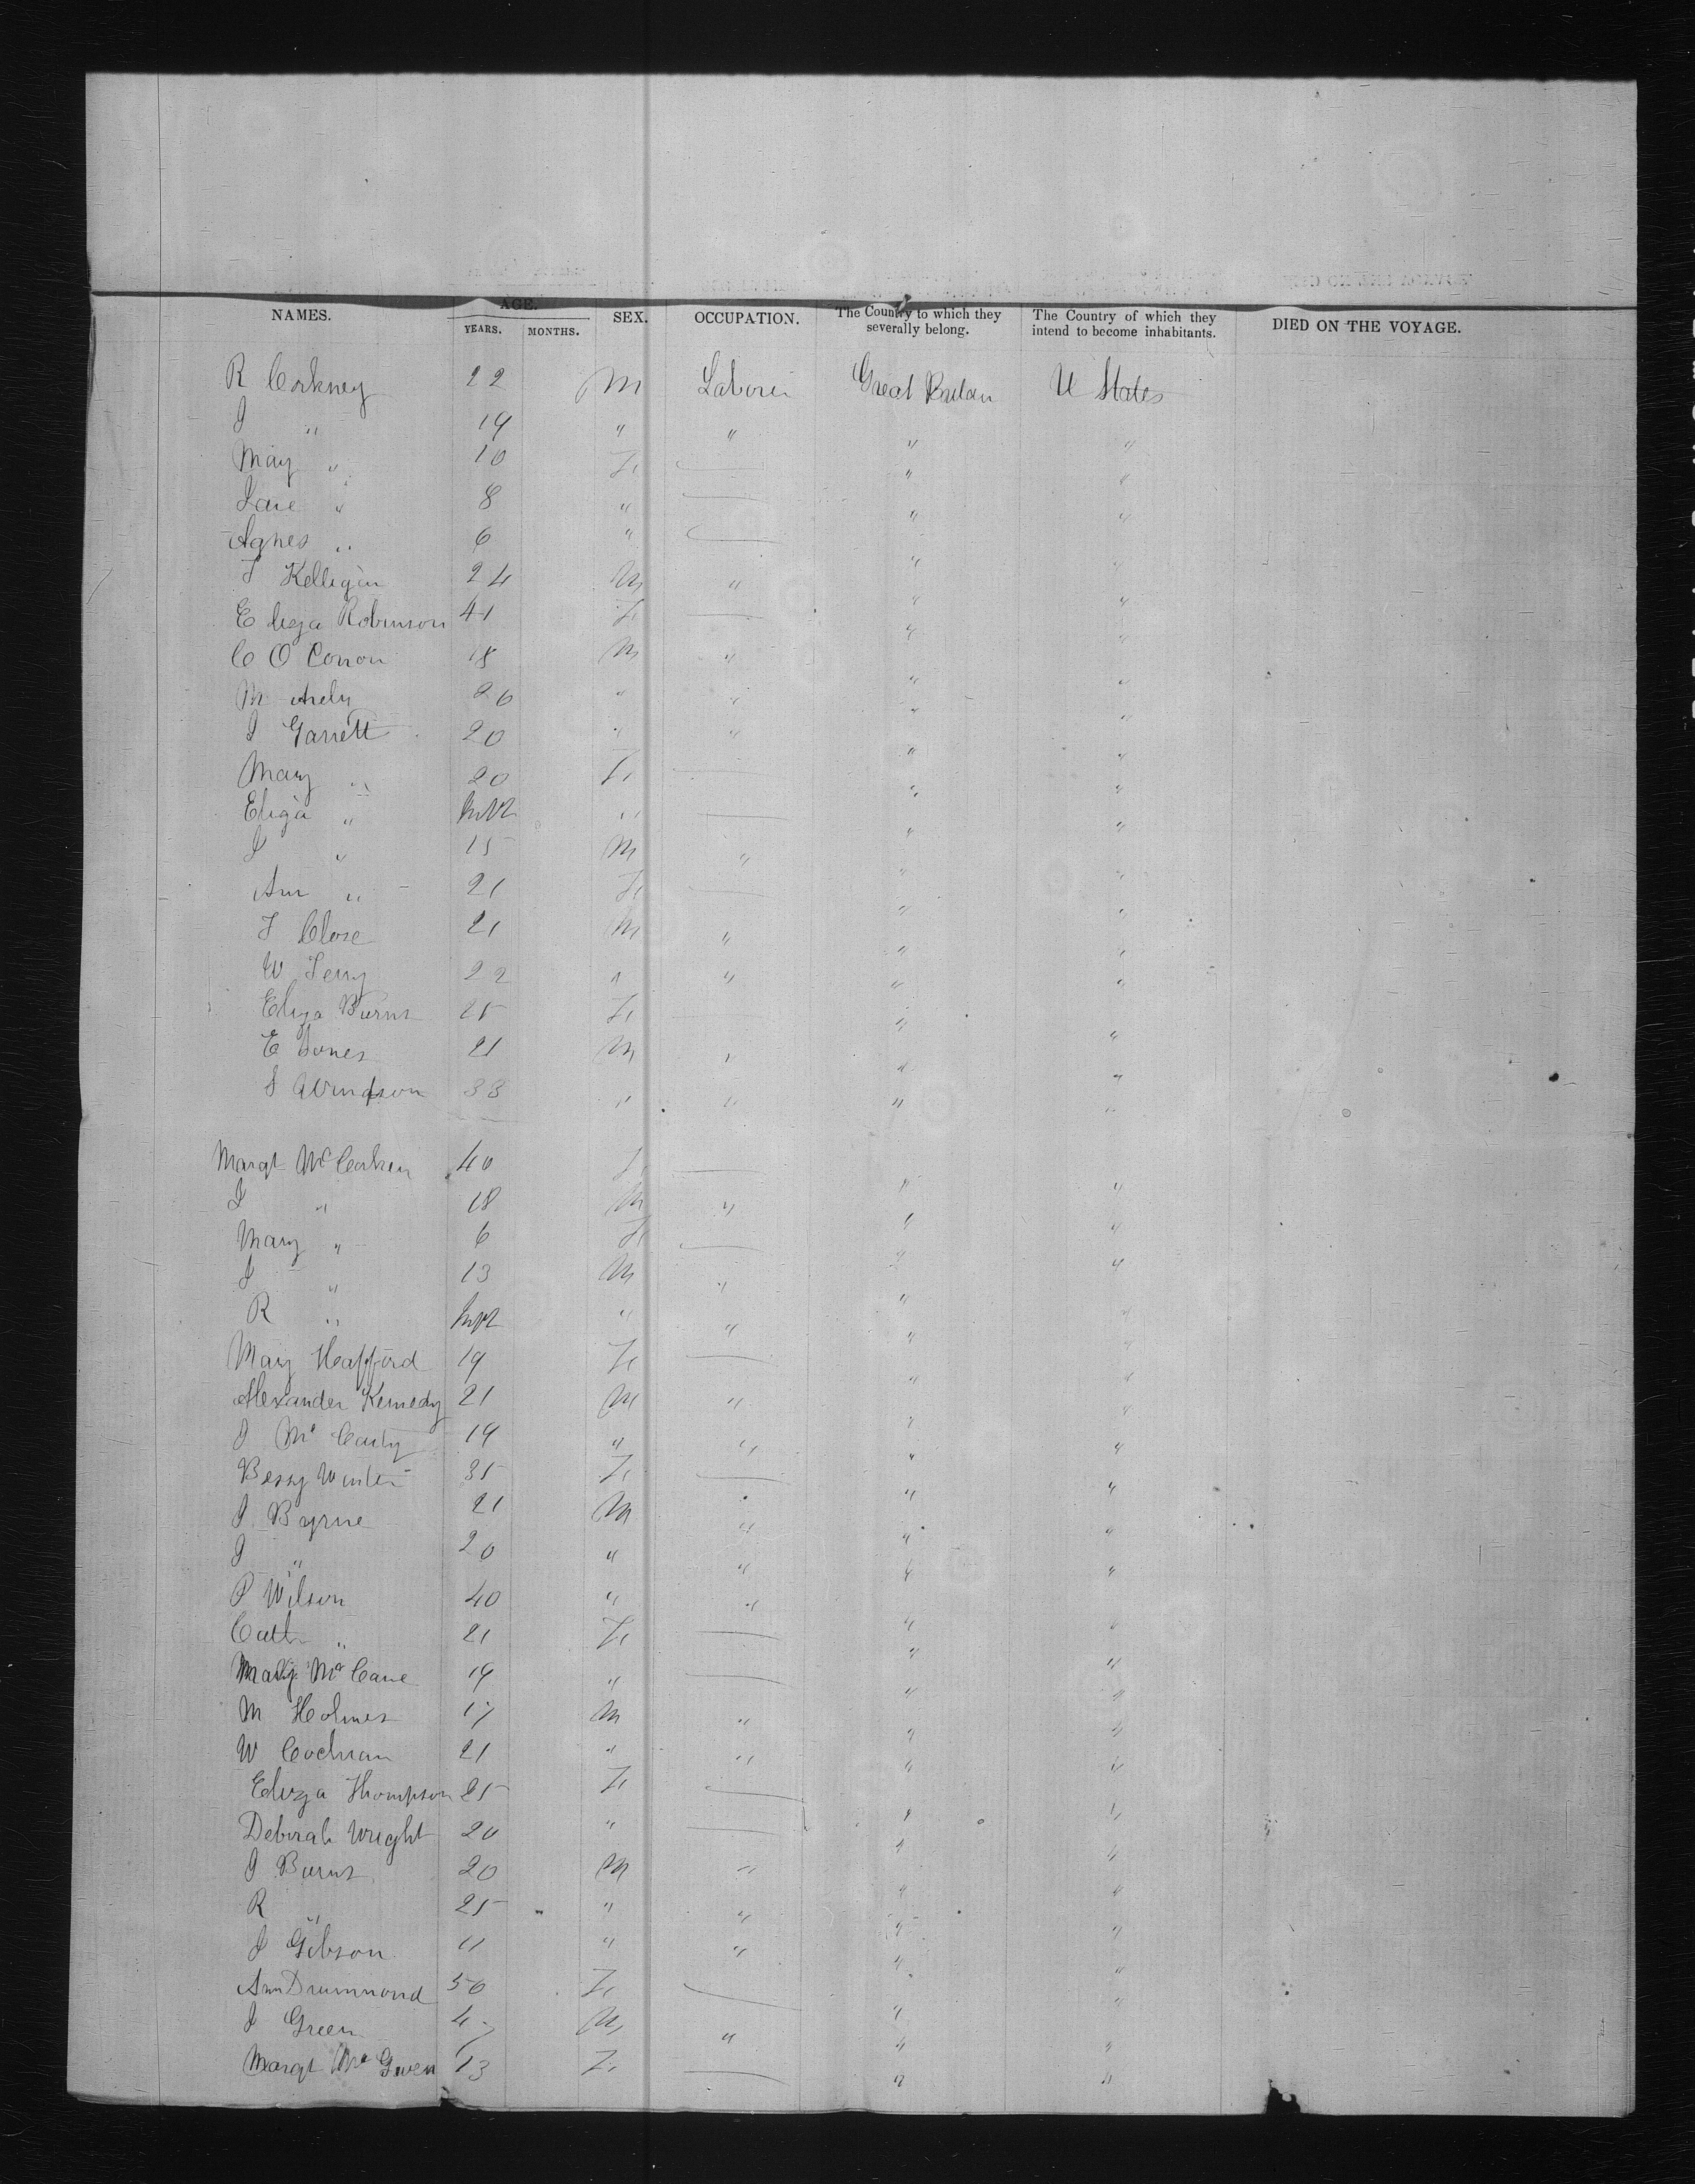 NAMES. AGE. YEARS. MONTHS. SEX. OCCUPATION. The Country to which they severally belong. The Country of which they intend to become inhabitants. DIED ON THE VOYAGE.
R Corkney 22 M Laborer Great Britan U States
J " 19 " " " "
Mary " 10 F — " "
Jane " 8 " — " "
Agnes " 6 " — " "
F Kelligan 24 M " " "
Eliza Robinson 41 F — " "
C O Conor 18 M " " "
M 26 " " " "
J Garrett 20 " " " "
Mary " 20 F — " "
Eliza " Inft " — " "
J " 15 M " " "
Ann " 21 F — " "
F Close 21 M " " "
W Terry 22 " " " "
Eliza Burns 25 F — " "
E Jones 21 M " " "
33 " " " "
Margt Mc 40 F — " "
J " 18 M " " "
Mary " 6 F — " "
J " 13 M " " "
R " Inft " " " "
Mary Hafford 19 F — " "
Alexander Kennedy 21 M " " "
J Mc Carty 19 " " " "
Bessy Winter 35 F — " "
J Byrne 21 M " " "
J " 20 " " " "
P Wilson 40 " " " "
Cath " 21 F — " "
Mary Mc Cane 19 " — " "
M Holmes 17 M " " "
W Cochran 21 " " " "
Eliza Thompson 25 F — " "
Deborah Wright 20 " — " "
J Burns 20 M " " "
R " 25 " " " "
J Gibson 11 " " " "
Ann Drummond 50 F — " "
J Green 47 M " " "
Margt Mc Gwen 13 F — " "